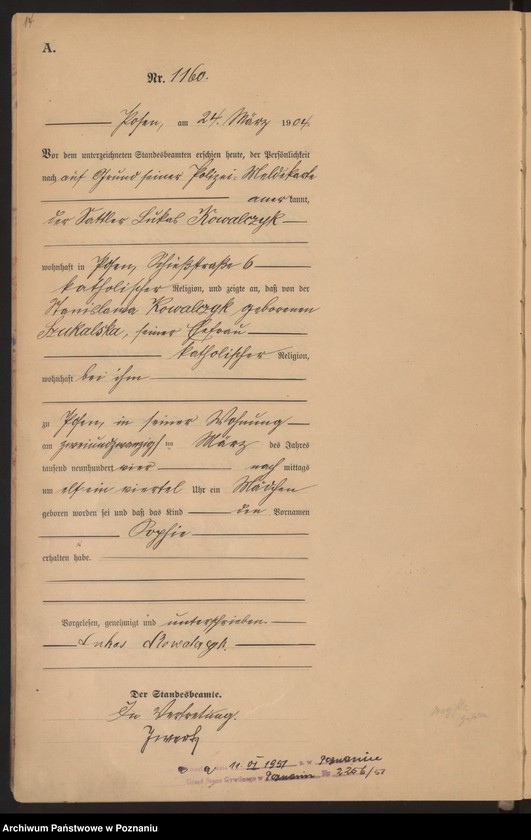 14
A.
Nr. 1160.
Posen, am 24. März 1904.
Vor dem unterzeichneten Standesbeamten erschien heute, der Persönlichkeit
nach auf Grund seiner Polizei-Meldekarte
anerkannt,
der Sattler Lukas Kowalczyk
wohnhaft in Posen, Schießstraße 6
katholischer Religion, und zeigte an, daß von der
Stanislawa Kowalczyk geborenen
Szukalska, seiner Ehefrau
katholischer Religion,
wohnhaft bei ihm
zu Posen, in seiner Wohnung
am zweiundzwanzigsten März des Jahres
tausend neunhundert vier nach mittags
um elf ein viertel Uhr ein Mädchen
geboren worden sei und daß das Kind den Vornamen
Sophie
erhalten habe.
Vorgelesen, genehmigt und unterschrieben.
Lukas Kowalczyk
Der Standesbeamte.
In Vertretung.
11. VI 1951 Poznaniu
Urząd Stanu Cywilnego w Poznaniu Nr 2256/51
Archiwum Państwowe w Poznaniu